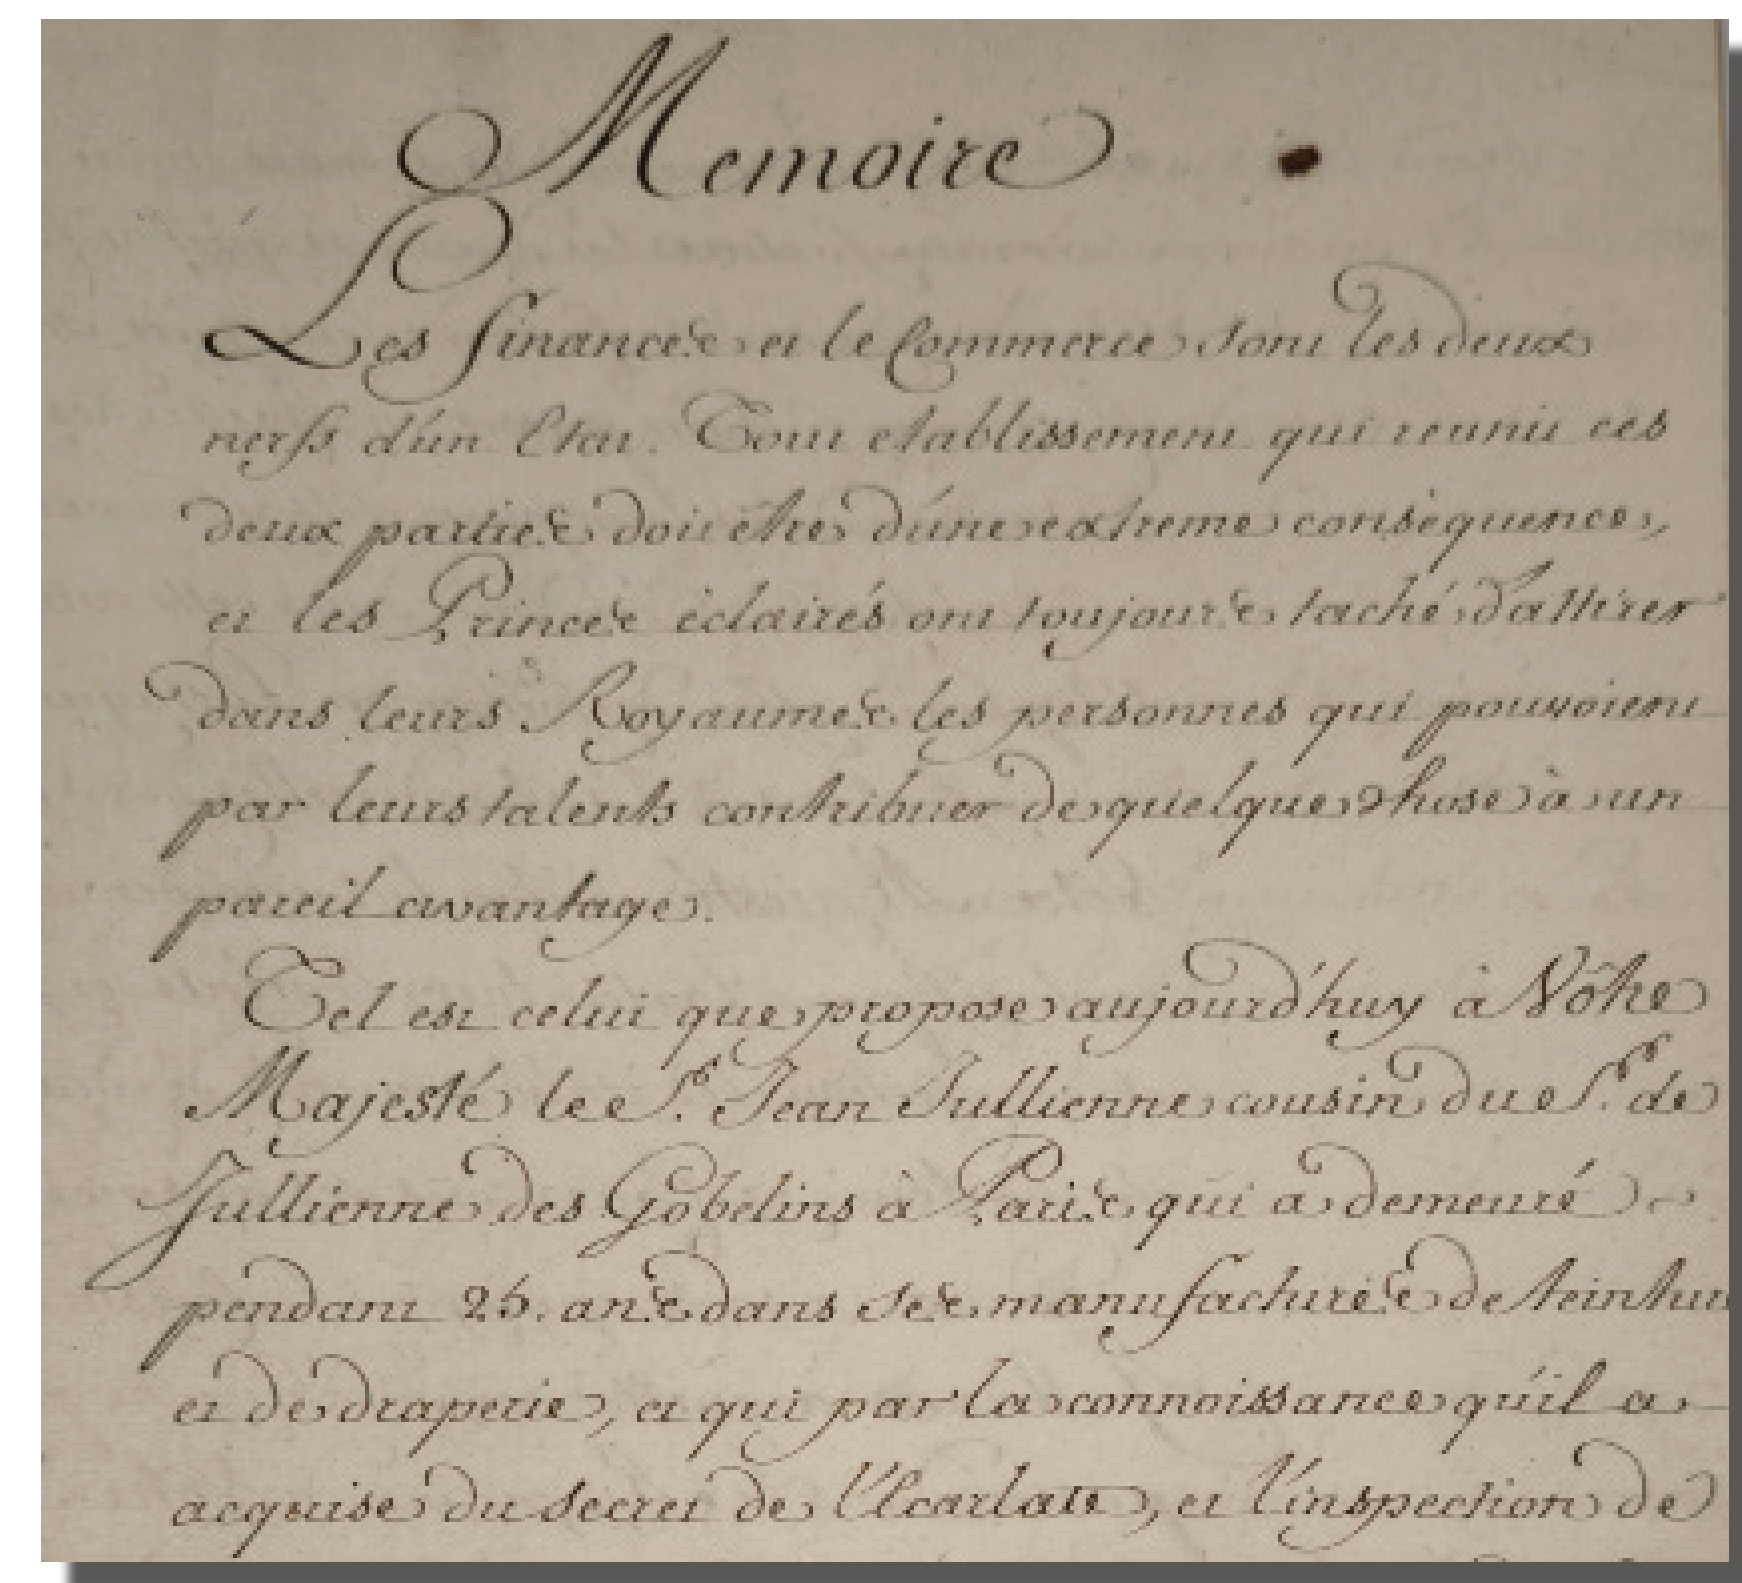 Memoire
Les finances et le Commerce sont les deux
nerfs d'un Etat. Tout etablissement qui reunit ces
deux parties doit être d'une extreme conséquence,
et les Princes éclairés ont toujours taché d'attirer
dans leurs Royaumes les personnes qui pouvoient
par leurs talents contribuer de quelque chose à un
pareil avantage.
Tel est celui que propose aujourd'huy à Vôtre
Majesté le Sr. Jean Jullienne cousin du Sr. de
Jullienne des Gobelins à Paris qui a demeuré
pendant 25. ans dans ses manufactures de teintur
et de draperie, et qui par la connoissance qu'il a
acquise du secret de l'Ecarlate, et l'inspection de